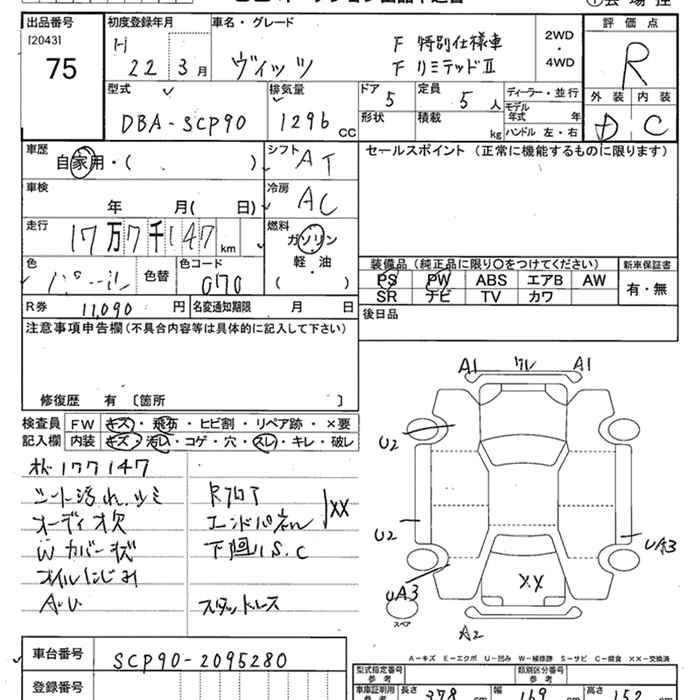 出品番号 初度登録年月 車名・グレード 評価点
[2043] H F 特別仕様車 2WD
75 22 3 月 ヴィッツ F リミテッドⅡ ・ 4WD R
型式 排気量 ドア 5 定員 5 人 ディーラー・並行 外装 内装
DBA-SCP90 1296 CC 形状 積載 kg モデル年式 年 D C
ハンドル 左・右
車歴 自家用・( ) シフト AT セールスポイント (正常に機能するものに限ります)
車検 年 月( 日) 冷房 AC
走行 17万7千147 km 燃料 ガソリン
軽・油
( )
色 色替 色コード 070
装備品 (純正品に限り○をつけてください) 新車保証書
PS PW ABS エアB AW 有・無
SR ナビ TV カワ
R券 11,090 円 名変通知期限 月 日 後日品
注意事項申告欄 (不具合内容等は具体的に記入して下さい)
修復歴 有 〔箇所 〕
検査員 FW キズ・飛石・ヒビ割・リペア跡・×要
記入欄 内装 キズ・汚レ・コゲ・穴・スレ・キレ・破レ
177147
シート汚れ シミ RフロA
オーディオ欠 エンドパネル XX
W カバーキズ 下廻りS.C
オイルにじみ
A・U スタッドレス
A1 ワレ A1
U2
U2 UA3
UA3 XX
スペア
A2
A-キズ E-エクボ U-凹み W-補修跡 S-サビ C-腐食 XX-交換済
車台番号 SCP90-2095280
登録番号
型式指定番号 参考 類別区分番号 参考
車庫証明用 参考 長さ 378 cm 幅 169 cm 高さ 152 cm